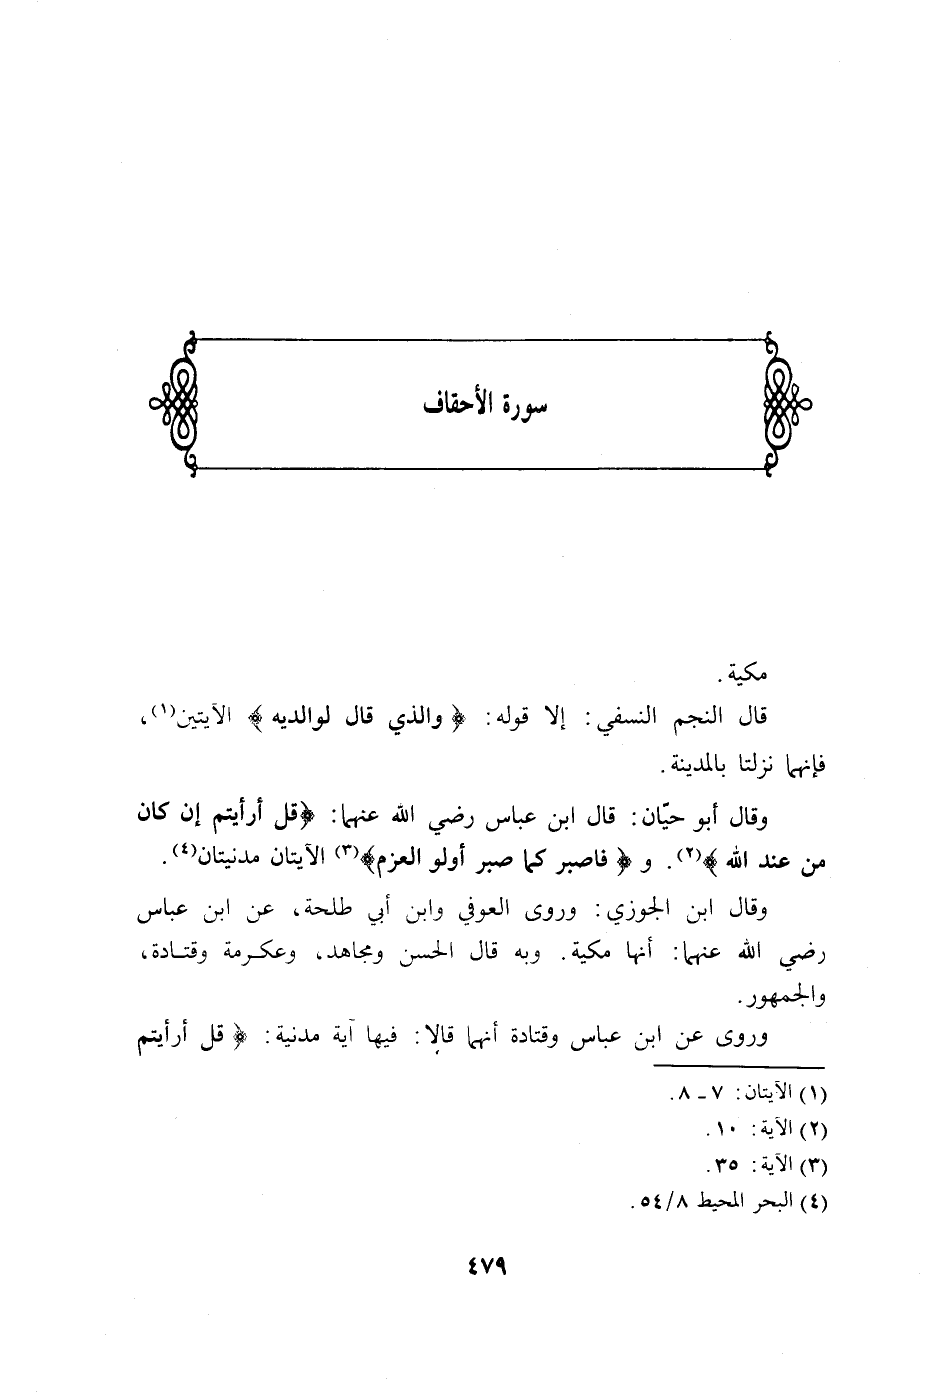 سورة الأحقاف
مكية.
قال النجم النسفي: إلا قوله: ﴿ والذي قال لوالديه ﴾ الآيتين(١)،
فإنهما نزلتا بالمدينة.
وقال أبو حيّان: قال ابن عباس رضي الله عنهما: ﴿قل أرأيتم إن كان
من عند الله ﴾(٢). و ﴿ فاصبر كما صبر أولو العزم﴾(٣) الآيتان مدنيتان(٤).
وقال ابن الجوزي: وروى العوفي وابن أبي طلحة، عن ابن عباس
رضي الله عنهما: أنها مكية. وبه قال الحسن ومجاهد، وعكرمة وقتادة،
والجمهور.
وروى عن ابن عباس وقتادة أنهما قالا: فيها آية مدنية: ﴿ قل أرأيتم
(١) الآيتان: ٧ ـ ٨.
(٢) الآية: ١٠.
(٣) الآية: ٣٥.
(٤) البحر المحيط ٥٤/٨.
٤٧٩